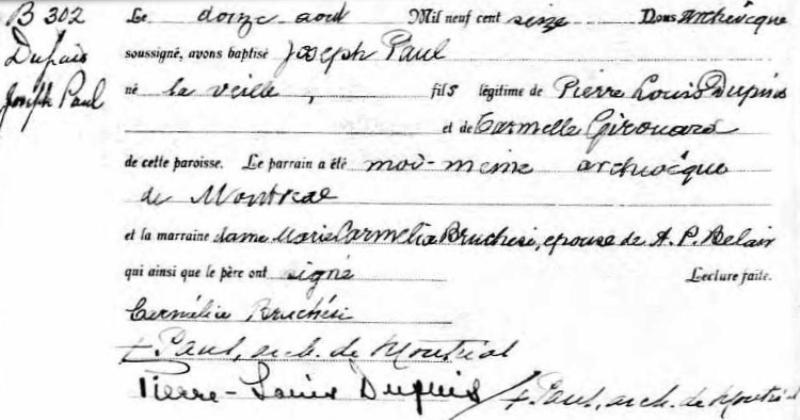 B 302
Dupuis
Joseph Paul
Le douze août Mil neuf cent seize Nous archevêque
soussigné, avons baptisé Joseph Paul
né la veille, fils légitime de Pierre Louis Dupuis
et de Carmelle Girouard
de cette paroisse. Le parrain a été moi-meme archevêque
de Montreal
et la marraine dame Marie Carmelia Bruchesi, epouse de A. P. Belair
qui ainsi que le père ont signé Lecture faite.
Carmélia Bruchési
+ Paul, arch. de Montréal
Pierre-Louis Dupuis / + Paul, arch. de Montréal